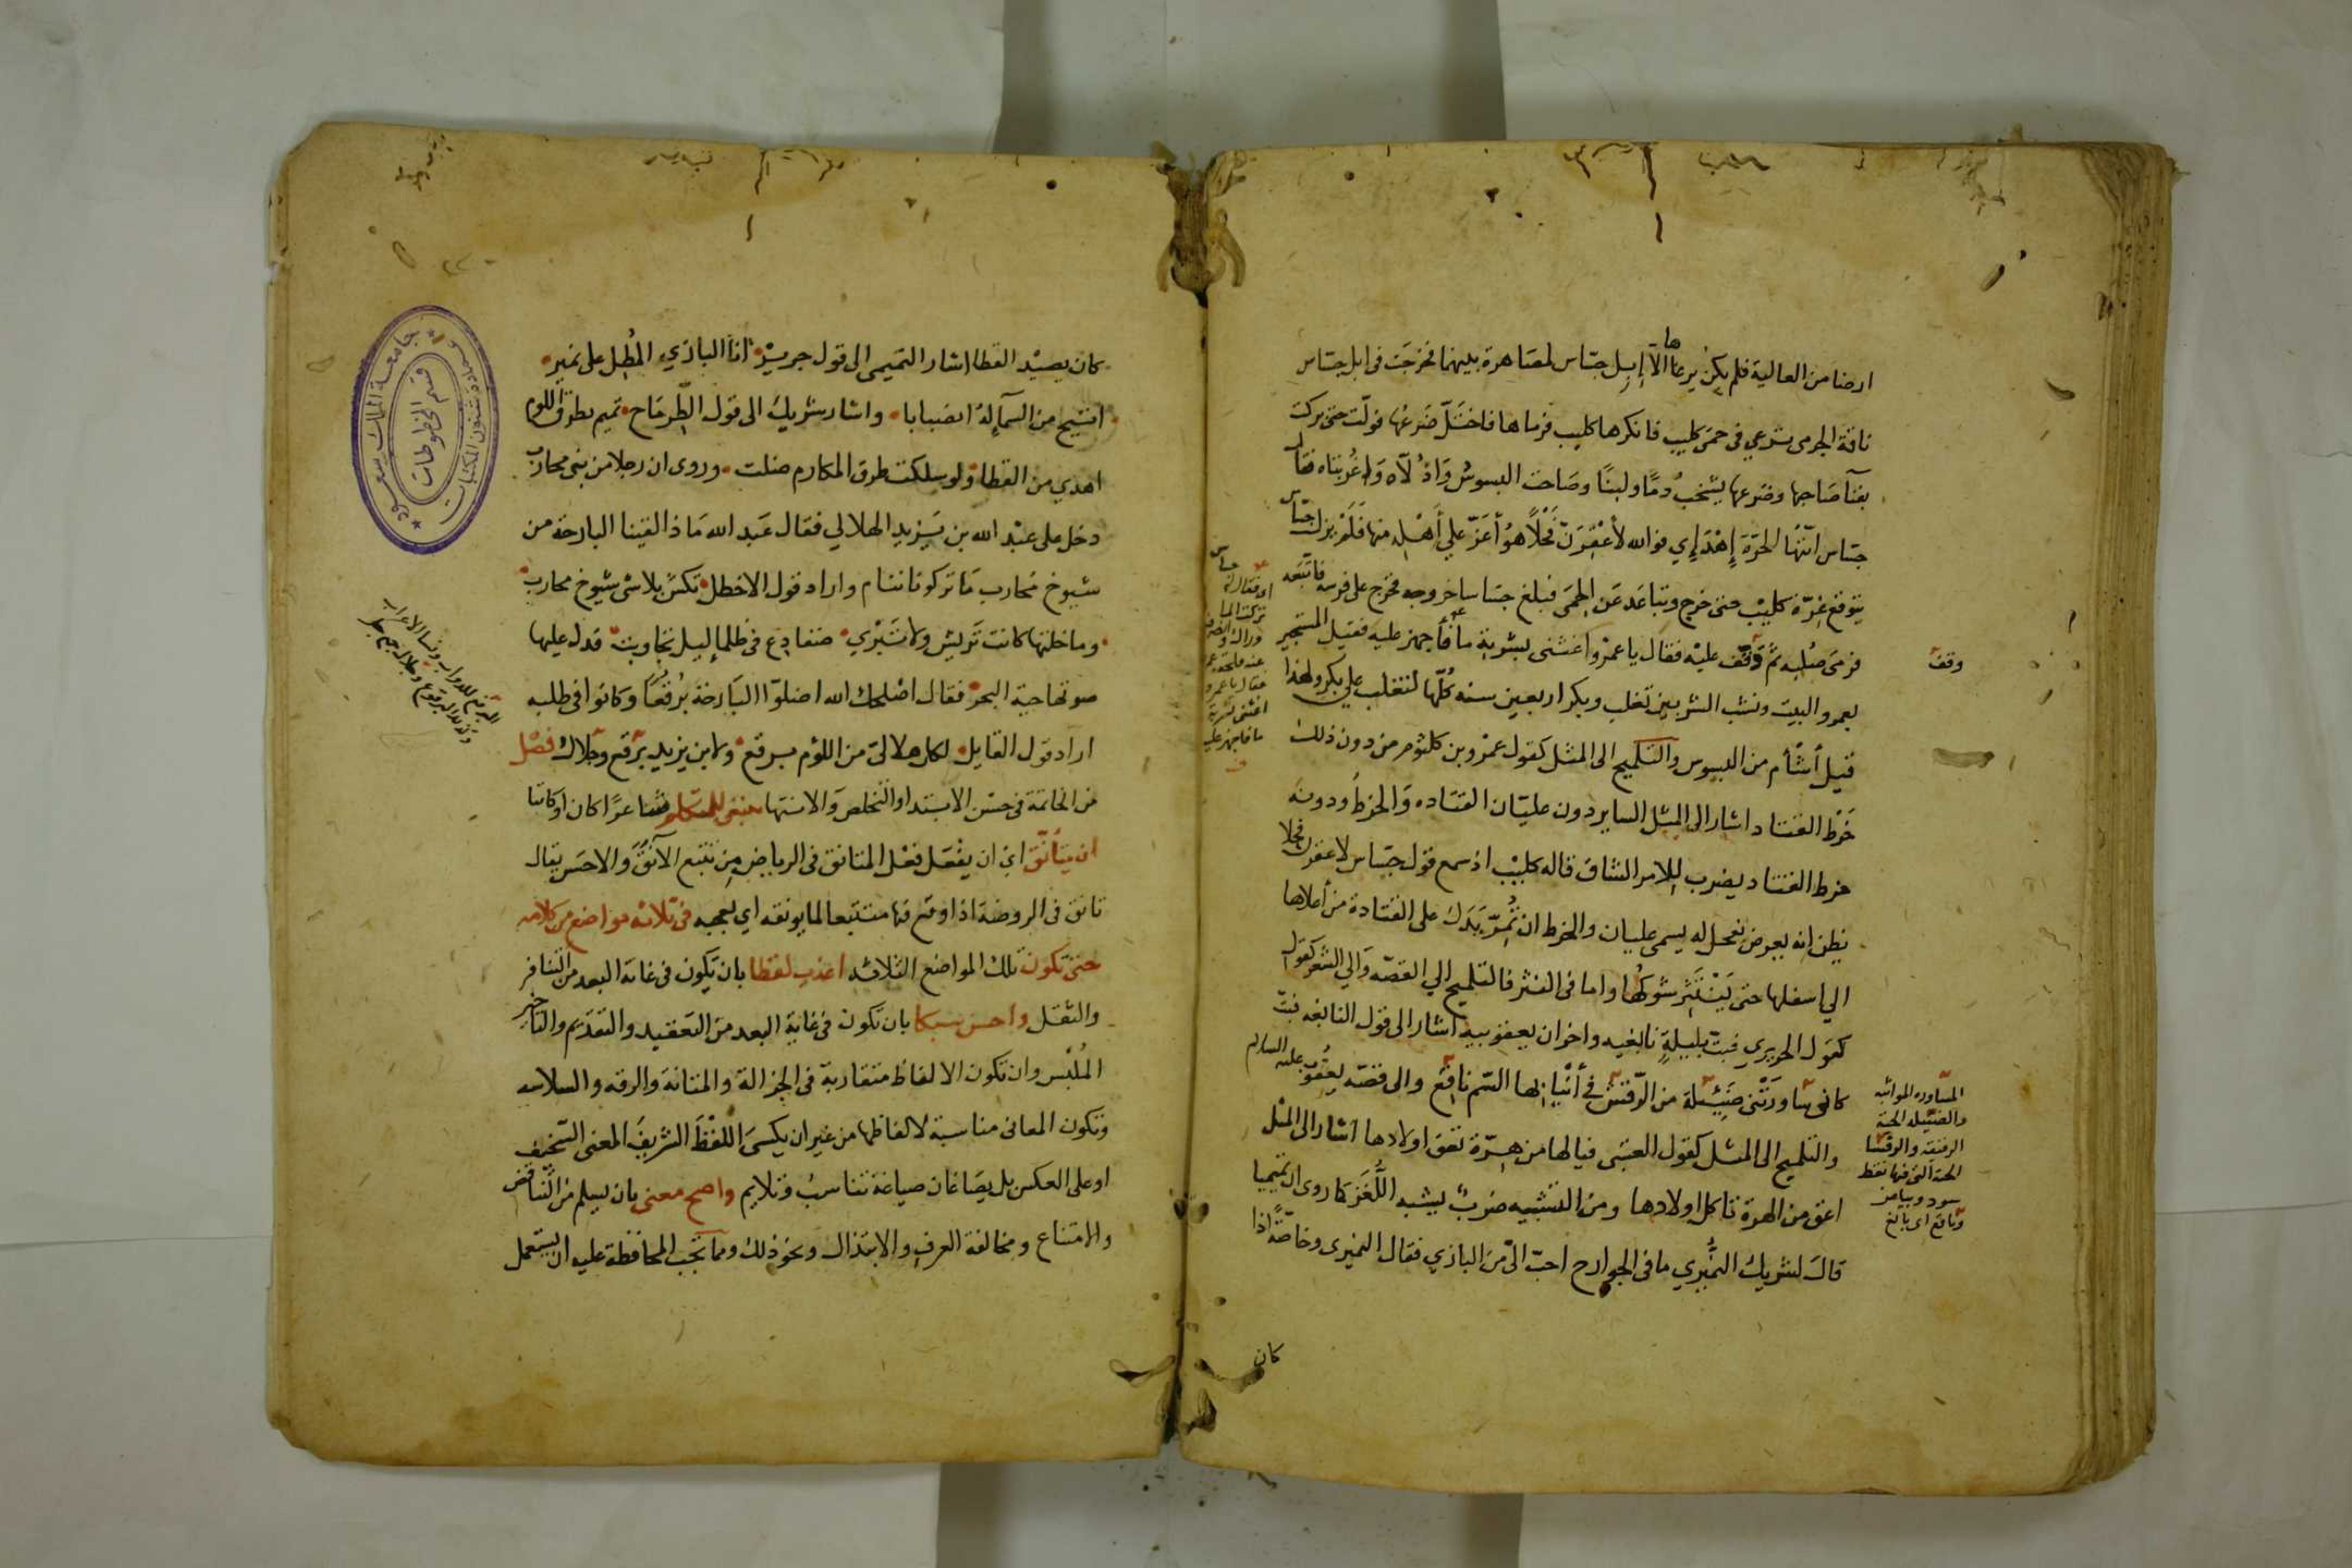 ارضا من العالية فلم يكن يرعاها الا إبل جساس لمصاهرة بينهما فخرجت في ابل جساس
ناقة الجرمي ترعي في حمى كليب فانكرها كليب فرماها فاختل ضرعها فولت حتى بركت
بفنآ صاحبها وضرعها يشخب دمًا ولبنًا وصاحت البسوس واذلّاه واغربتاه فقال
جساس ايتها الحرّة إهدإي فوالله لأعقرنّ فحلًا هو أعزّ علي أهله منها فلم يزل جساس
يتوقع غرّة كليب حتى خرج وتباعد عن الحمى فبلغ جساسا خروجه فخرج على فرسه فاتبعه
فرمى صلبه ثم وقف عليه فقال يا عمرو اغثني بشربة ما فأجهز عليه فقيل المستجير
بعمرو البيت ونشب الشر بين تغلب وبكر اربعين سنه كلّها لتغلب علي بكر ولهذا
قيل أشأم من البسوس والتلميح الى المثل كقول عمرو بن كلثوم من دون ذلك
خرط القتاد اشار الى المثل الساير دون عليّان القتاده والخرط ودونه
خرط القتاد يضرب للامر الشاق قاله كليب اذ سمع قول جساس لاعقرن فحلا
يظن انه يعرض بفحل له يسمى عليان والخرط ان تُمرّ يدك على القتادة من أعلاها
الي اسفلها حتى ينتثر شوكها واما في النثر فالتلميح الي القصه والي الشعر كقول
كقول الحريري فبت بليلةٍ نابغيه واحزان يعقوبيه اشار الى قول النابغه فبتّ
كاني ساورتني ضئيلة من الرّقش في أنيابها السّم ناقع والى قصة يعقوب عليه السلام
والتلميح الى المثل كقول العتبى فيا لها من هرّة تعق اولادها اشار الى المثل
اعق من الهرة تاكل اولادها ومن التشبيه ضربٌ يشبه اللّغز كما روى ان تميميا
قال لشريك النُّميري ما في الجوارح احبّ الىّ من البازي فقال النميري وخاصّةً اذا
وقف
المساوره المواثبه
والضئيله الحية
الحية التي فيها نقط
سود وبيض
وناقع اى بالغ
كان
كان يصيد القطا اشار التميمى الى قول جرير انا البازي المُطِل على نمير
اتيح من السمآء له انصبابا واشار شريك الى قول الطرماح تميم بطرق اللوم
اهدي من القطا ولو سلكت طرق المكارم ضلت وروى ان رجلا من بني محارب
دخل على عبد الله بن يزيد الهلالي فقال عبد الله ماذا لقينا البارحة من
شيوخ محارب ما تركونا ننام واراد قول الاخطل تكشّ بلا شى شيوخ محارب
وما خلتها كانت تريش ولا تبري ضفادع في ظلما ليل تجاوبت فدل عليها
صوتها حية البحر فقال اصلحك الله اضلوا البارحة برقعًا وكانوا في طلبه
اراد قول القايل لكل هلالىّ من اللؤم برقع ولابن يزيد برقع وجلال فصل
من الخاتمة في حسن الابتدا والتخلص والانتها ينبغي للمتكلم شاعرًا كان او كاتبا
ان يتأنّق اي ان يفعل فعل المتانق في الرياض من تتبع الآنق والاحسن يقال
تانق في الروضة اذا وقع فيها متتبعا لما يونقه اي يعجبه في ثلاثة مواضع من كلامه
حتى تكون تلك المواضع الثلاثه اعذب لفظا بان تكون في غاية البعد من التنافر
والثقل واحسن سبكا بان تكون في غاية البعد من التعقيد والتقديم والتاخير
المُلبس وان تكون الالفاظ متقاربة في الجزالة والمتانة والرقه والسلاسه
وتكون المعانى مناسبة لالفاظها من غير ان يكسى اللفظ الشريف المعنى السخيف
او على العكس بل يصاغان صياغة تناسب وتلايم واصح معنى بان يسلم من التناقض
والامتناع ومخالفة العرف والابتذال ونحو ذلك ومما تجب المحافظة عليه ان يستعمل
جامعة الملك سعود
عمادة شئون المكتبات
قسم المخطوطات